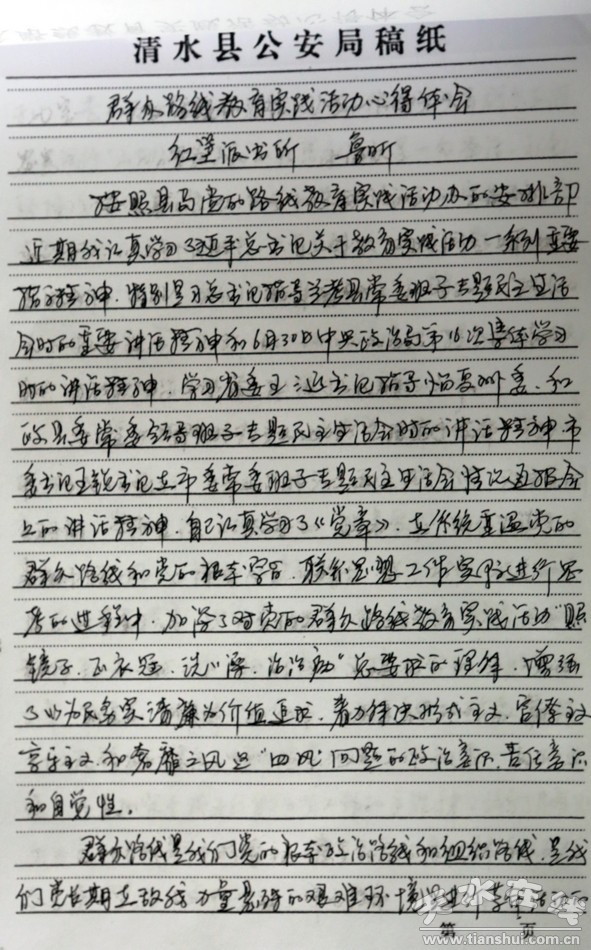 清水县公安局稿纸
群众路线教育实践活动心得体会
红堡派出所 鲁昕
按照县局党的路线教育实践活动办的安排部
近期我认真学习了习近平总书记关于教育实践活动一系列重要
指示精神,特别是习总书记指导兰考县常委班子专题民主生活
会时的重要讲话精神和6月30日中央政治局第16次集体学习
时的讲话精神,学习省委王三运书记指导临夏州委、和
政县委常委领导班子专题民主生活会时的讲话精神市
委书记王锐书记在市委常委班子专题民主生活会情况通报会
上的讲话精神,自己认真学习了《党章》,在系统重温党的
群众路线和党的根本宗旨,联系思想工作实际进行思
考的进程中,加深了对党的群众路线教育实践活动“照
镜子、正衣冠、洗洗澡、治治病”总要求的理解,增强
了以为民务实清廉为价值追求,着力解决形式主义、官僚主义
享乐主义和奢靡之风这“四风”问题的政治意识、责任意识
和自觉性。
群众路线是我们党的根本政治路线和组织路线,是我
们党长期在敌我力量悬殊的艰难环境里进行革命活动的
第 页
天水在线
www.tianshui.com.cn